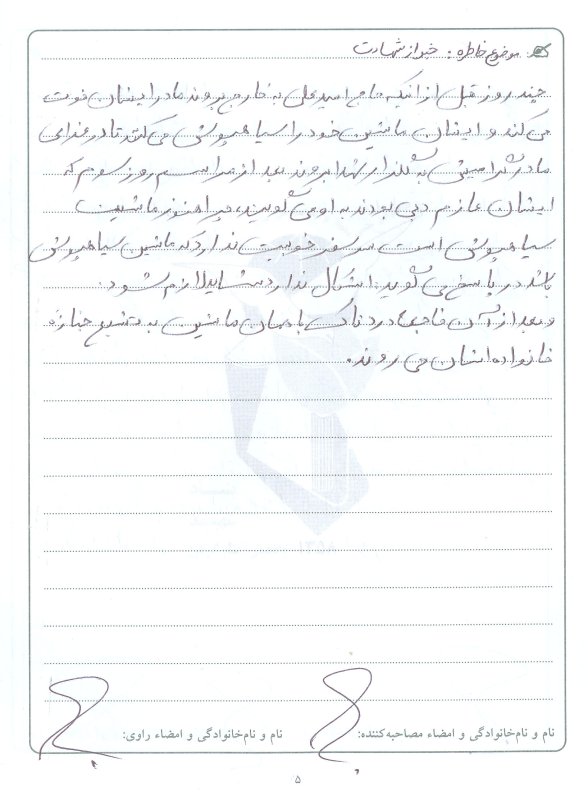 موضوع خاطره: خبر از شهادت
چند روز قبل از اینکه حاج اسید علی به خارج بروند مادر ایشان فوت
می کند و ایشان ماشین خود را سیاهپوش می کند تا در عزای
مادرش به گلزار شهدا بروند بعد از مراسم روز سوم که
ایشان عازم دبی بودند به او می گویند، چرا هنوز ماشینت
سیاهپوش است سر سفر خوبیت ندارد که ماشین سیاهپوش
باشد در پاسخ می گوید: اشکال ندارد شاید لازم شود.
و بعد از آن فاجعه دردناک با همان ماشین به تشییع جنازه
خانواده اشان می روند.
نام و نام‌خانوادگی و امضاء مصاحبه‌کننده:
نام و نام‌خانوادگی و امضاء راوی:
۵